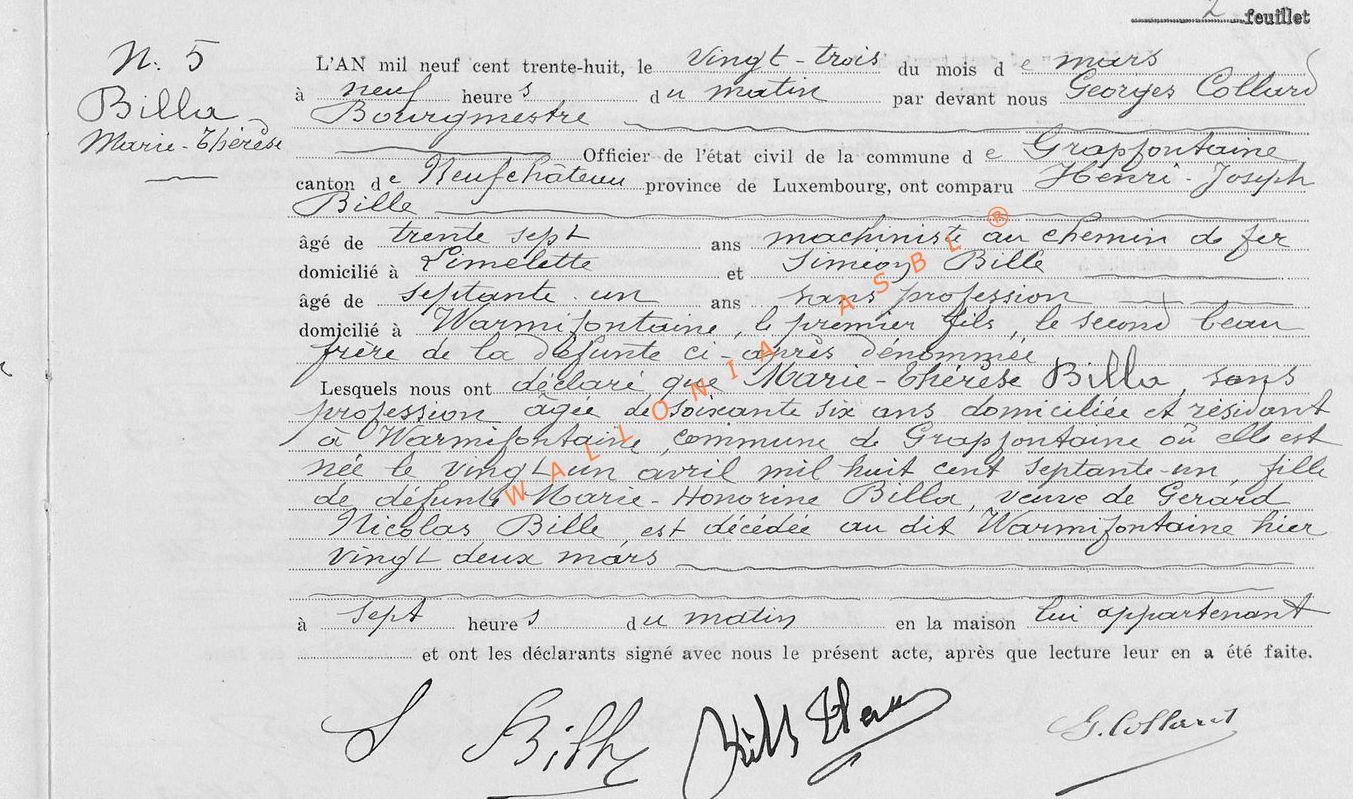 2 feuillet
N. 5
Billa
Marie-Thérèse
L'AN mil neuf cent trente-huit, le vingt-trois du mois d e mars
à neuf heure s du matin par devant nous Georges Collard
Bourgmestre
Officier de l'état civil de la commune d e Grapfontaine
canton de Neufchâteau province de Luxembourg, ont comparu Henri-Joseph
Bille
âgé de trente sept ans machiniste au chemin de fer
domicilié à Limelette et Siméon Bille
âgé de septante-un ans sans profession
domicilié à Warmifontaine, le premier fils, le second beau
frère de la défunte ci-après dénommée
Lesquels nous ont déclaré que Marie-Thérèse Billa, sans
profession âgée de soixante six ans domiciliée et résidant
à Warmifontaine, commune de Grapfontaine où elle est
née le vingt un avril mil huit cent septante-un, fille
de défunte Marie-Honorine Billa, veuve de Gérard
Nicolas Bille, est décédée au dit Warmifontaine hier
vingt deux mars
à sept heure s du matin en la maison lui appartenant
et ont les déclarants signé avec nous le présent acte, après que lecture leur en a été faite.
S Bille Bille Henri G. Collard
WALLONIA ASBL ®